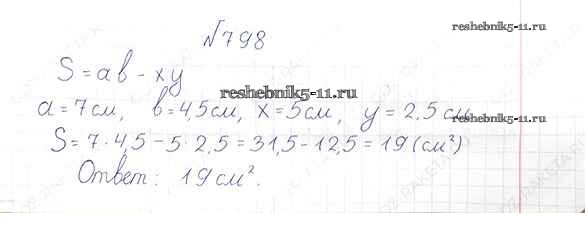 №798
reshebnik5-11.ru
S = ab - xy
reshebnik5-11.ru
a = 7см, b = 4,5см, x = 5см, y = 2,5см
S = 7 · 4,5 - 5 · 2,5 = 31,5 - 12,5 = 19 (см²)
Ответ: 19 см².